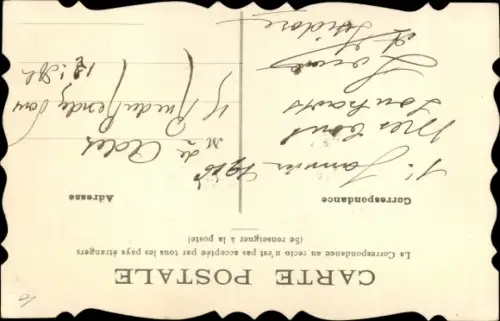 CARTE POSTALE
La Correspondance au recto n'est pas acceptée par tous les pays étrangers
(Se renseigner à la poste)
Correspondance
Adresse
1er Janvier
Mes bons
Souhaits
Louise
et Isidore
17 Rue du Rendez Vous